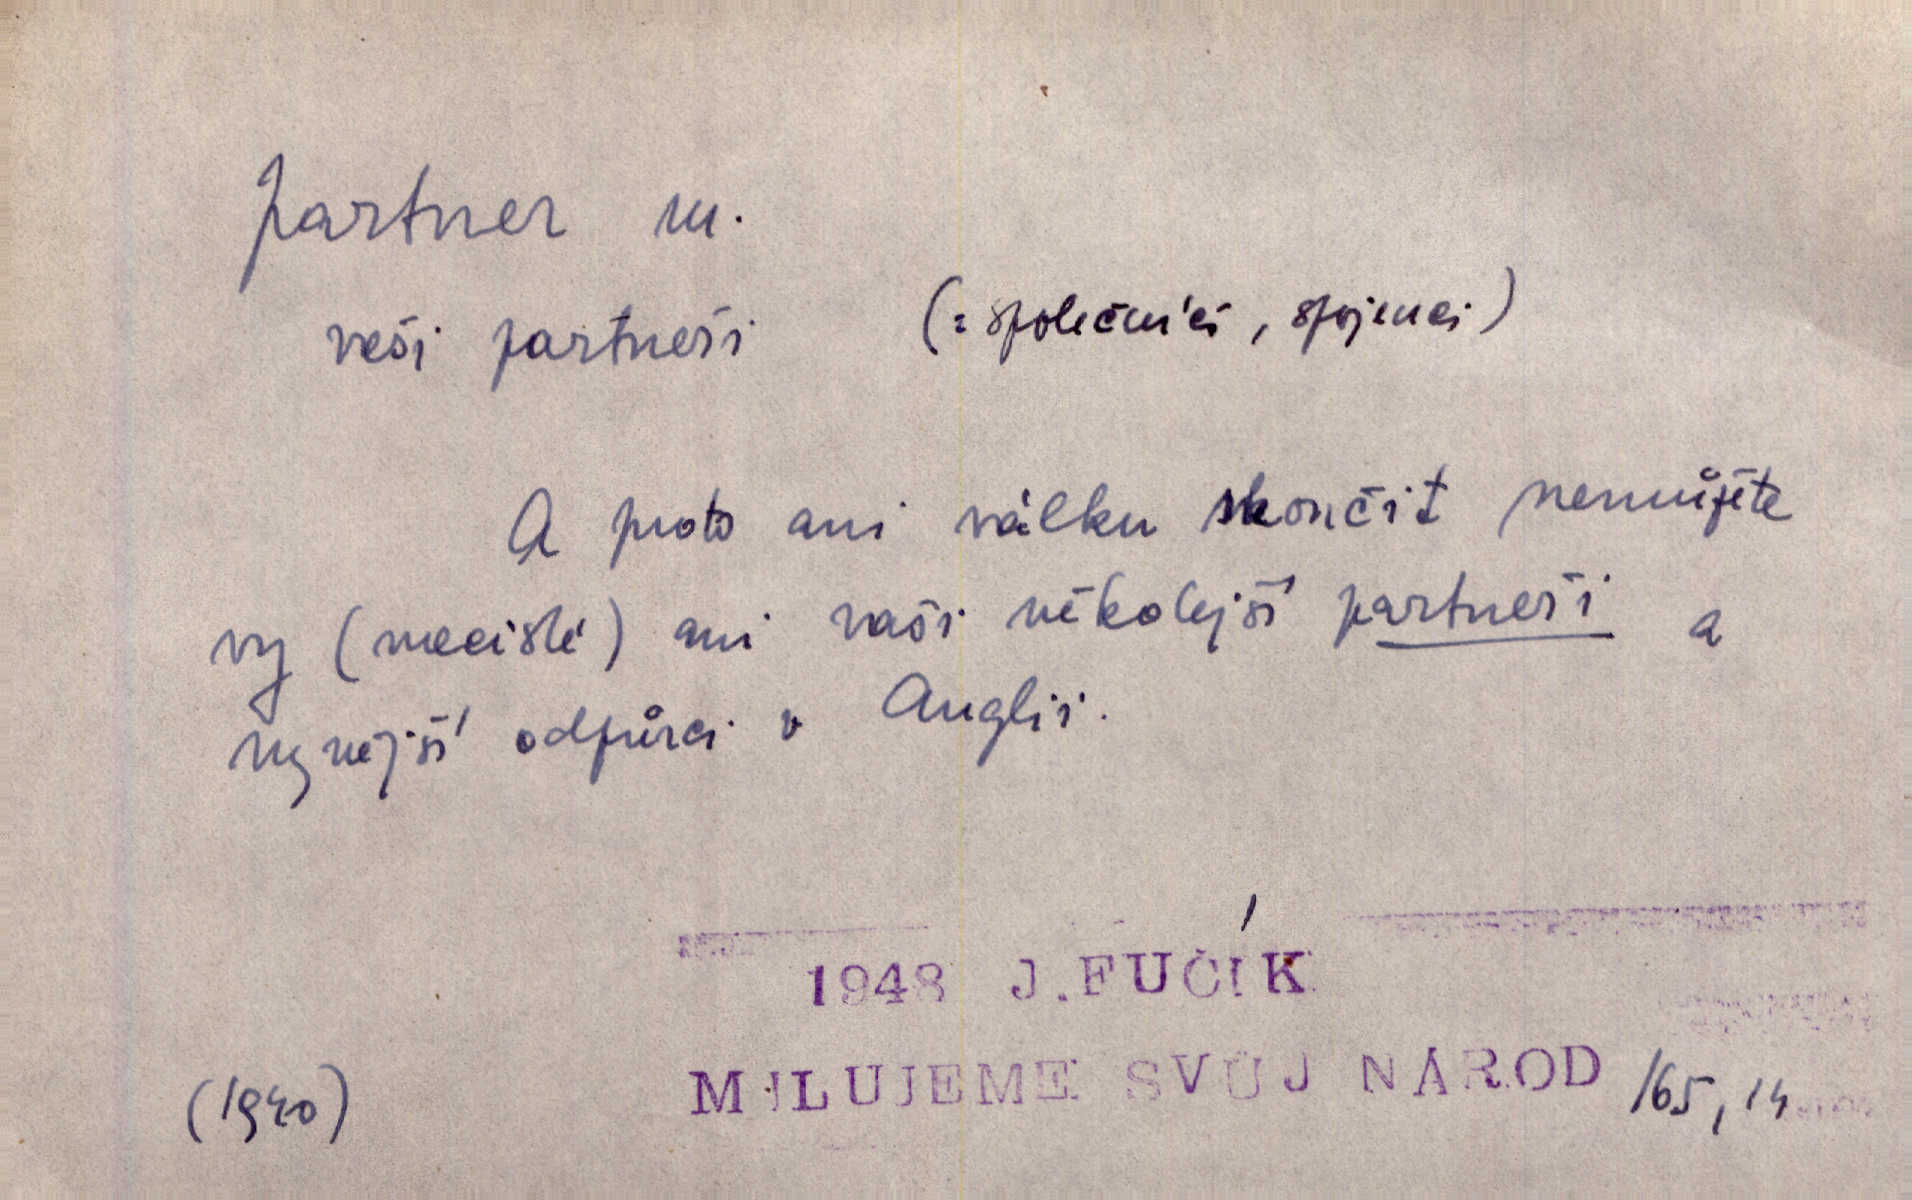 partner m.
vaši partneři (= společníci, spojenci)
A proto ani válku skončit nemůžete
vy (nacisté) ani vaši někdejší partneři a
nynější odpůrci v Anglii.
1948 J.FUČÍK
MILUJEME SVŮJ NÁROD 165, 14
(1940)